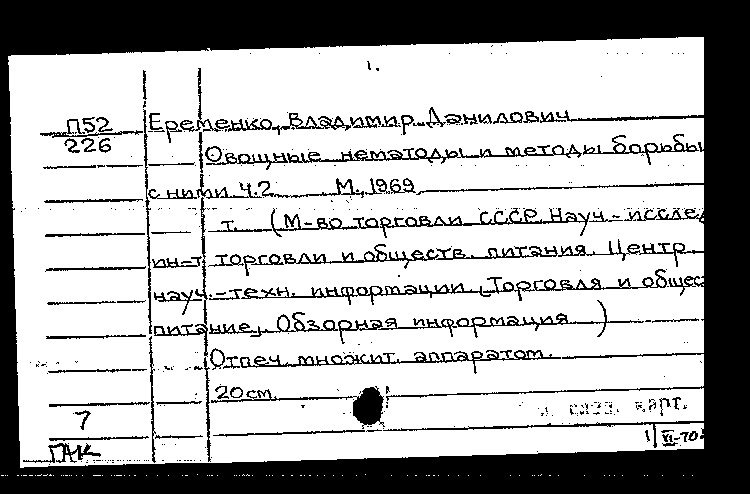 1.
П52
226
Еременко, Владимир Данилович
Овощные нематоды и методы борьбы
с ними. Ч.2. М., 1969
т. (М-во торговли СССР. Науч.-исслед
ин-т торговли и обществ. питания. Центр.
науч.-техн. информации. Торговля и общес
питание. Обзорная информация )
Отпеч. множит. аппаратом.
20 см.
карт.
7
ГАК
1/VI-70